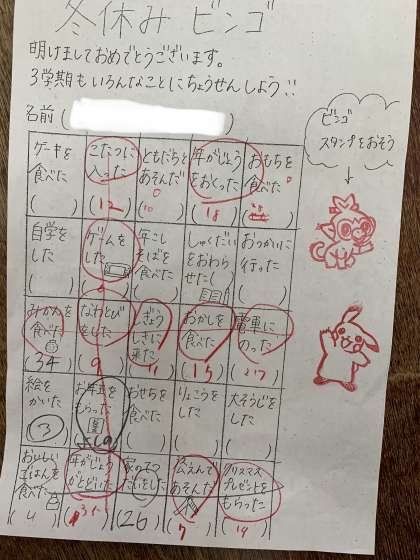 冬休み ビンゴ
明けましておめでとうございます。
3学期もいろんなことにちょうせんしよう！
名前（ ）
ビンゴ
スタンプをおそう
ケーキを
食べた
( )
こたつに
入った
(12)
ともだちと
あそんだ
(10)
年がじょう
をおくった
(18)
おもちを
食べた
自学を
した
( )
ゲームを
した
年こし
そばを
食べた
( )
しゅくだい
をおわら
せた(
おつかいに
行った
( )
みかんを
食べた
(34)
なわとび
をした
(9)
ぎょう
しきに
来た
おかしを
食べた
(15)
電車に
のった
(27)
絵を
かいた
(3)
お年玉を
もらった
おせちを
食べた
( )
りょこうを
した
( )
大そうじを
した
( )
おいしい
ごはんを
食べた
年がじょう
がとどいた
家のてつ
だいをした
(26)
公えんで
あそんだ
(7)
クリスマス
プレゼントを
もらった
(19)